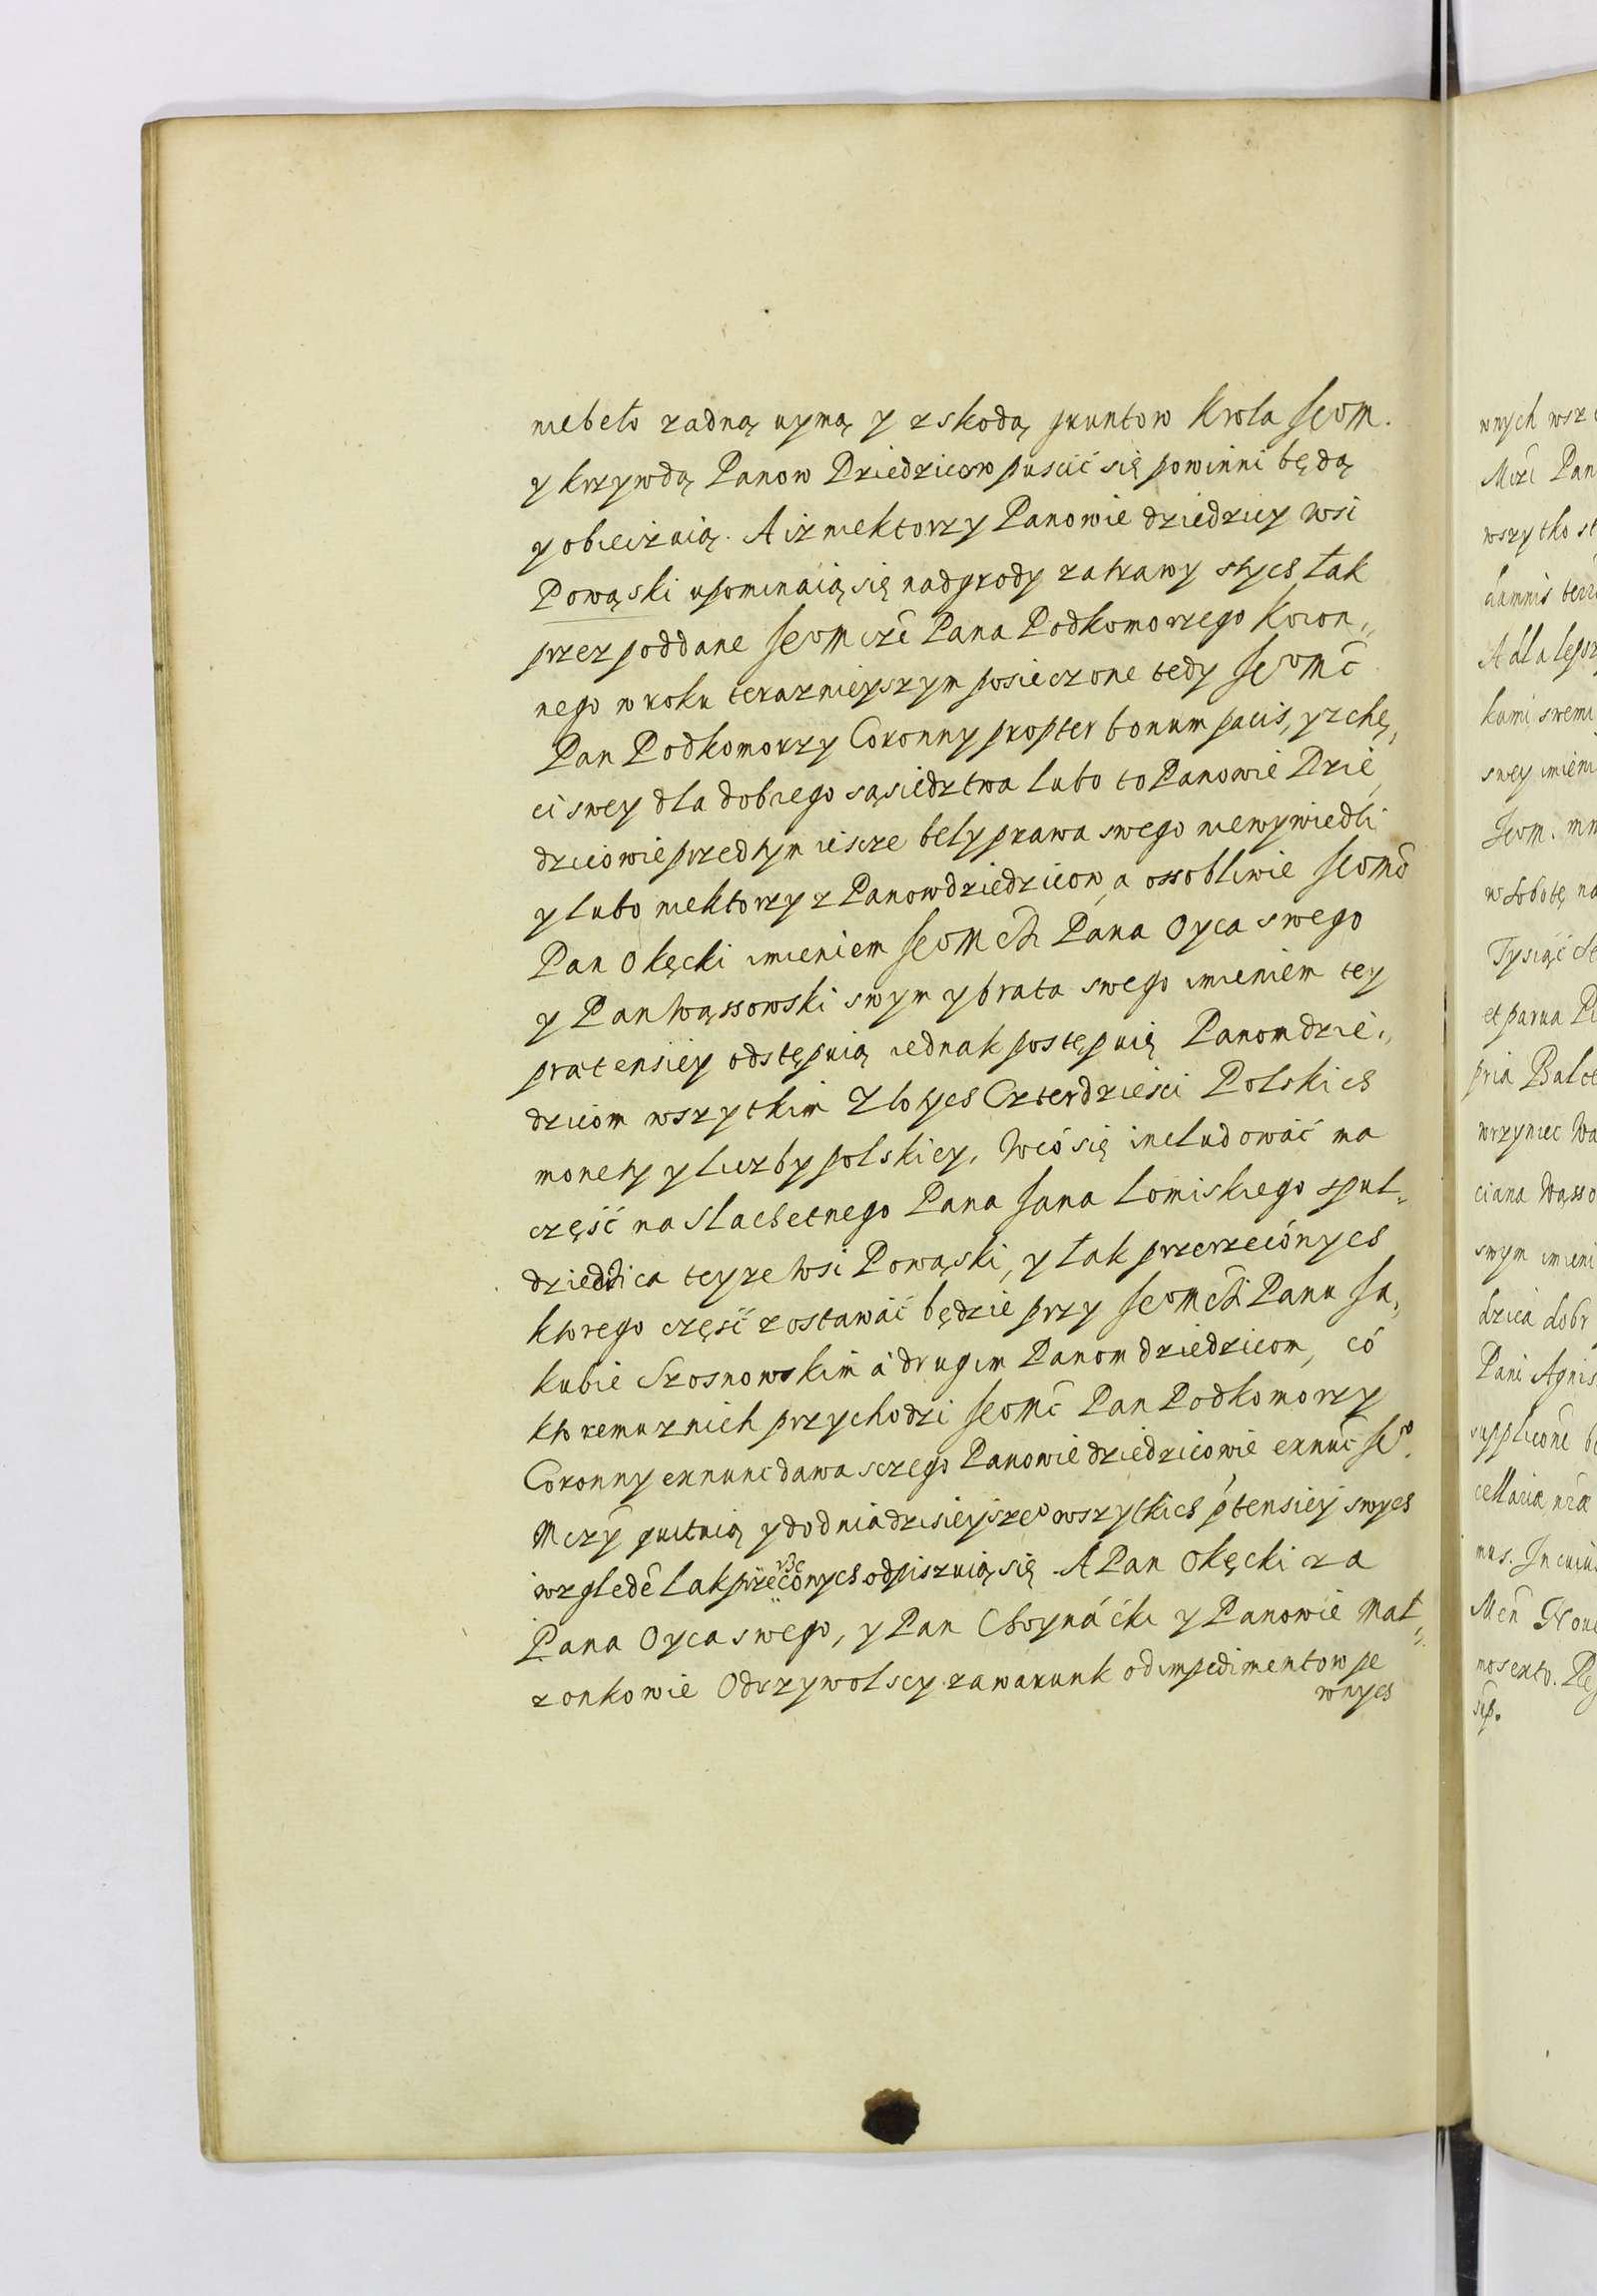 niebeło zadną uymą y zskodą gruntow Krola Jeom.
y krzywdą Panow Dziedzicow puscić się powinni będą
y obieciuią. A iz niektorzy Panowie dziedzicy wsi
Powąski upominaią się nadgrody za trawy z tych łak
przez poddane Jeomczi Pana Podkomorzego Koron„
nego w roku terazniejszym posieczone tedy Jeomć
Pan Podkomorzy Coronny propter bonum pacis, y z chę„
ci swey dla dobrego sąsiedztwa lubo to Panowie Dzie„
dzicowie przedtym iescze beły prawa swego niewywiedli
y lubo niektorzy z Panow dziedzicow, a ossobliwie Jeomć
Pan Okęcki imieniem Jeomci Pana Oyca swego
y Pan Wąssowski swym y brata swego imieniem tey
pretensiey odstępuią iednak postępuią Panom dzie„
dzicom wszytkim Złotych Czterdziesci Polskich
monety y liczby polskiey, Wcó się includować ma
część na Slachetnego Pana Jana Lomiskiego spul„
dziedzica teyze Wsi Powąski, y łak przerzeconych
ktorego część zostawać będzie przy Jeomci Panu Ja„
kubie Szosnowskim a drugim Panom dziedzicom, có
ktoremu z nich przychodzi Jeomć Pan Podkomorzy
Coronny exnunc dawa sczego Panowie dziedzicowie exnunc Je°
Mczi quituią y do dnia dzisieyszeº wszytkich ptensiey swych
względē łak przeconych odpiszuią się A Pan Okęcki za
Pana Oyca swego, y Pan Choynácki y Panowie Mał„
zonkowie Odrzywolscy zawarunk od impedimentow pe
wnych
wnych wsz
Mczi Pan
wszytko st
damnis
A dla lepsz
kami swemi
swey imieni
Jeom.
w Sobotę na
Tysiąć
et parua
pria Balce
wrzyniec Wa
ciana Wąsso
swym imieni
dzica dobr
Pani Agnis
cellaria
nus. In cuius
Men
mo sexto.